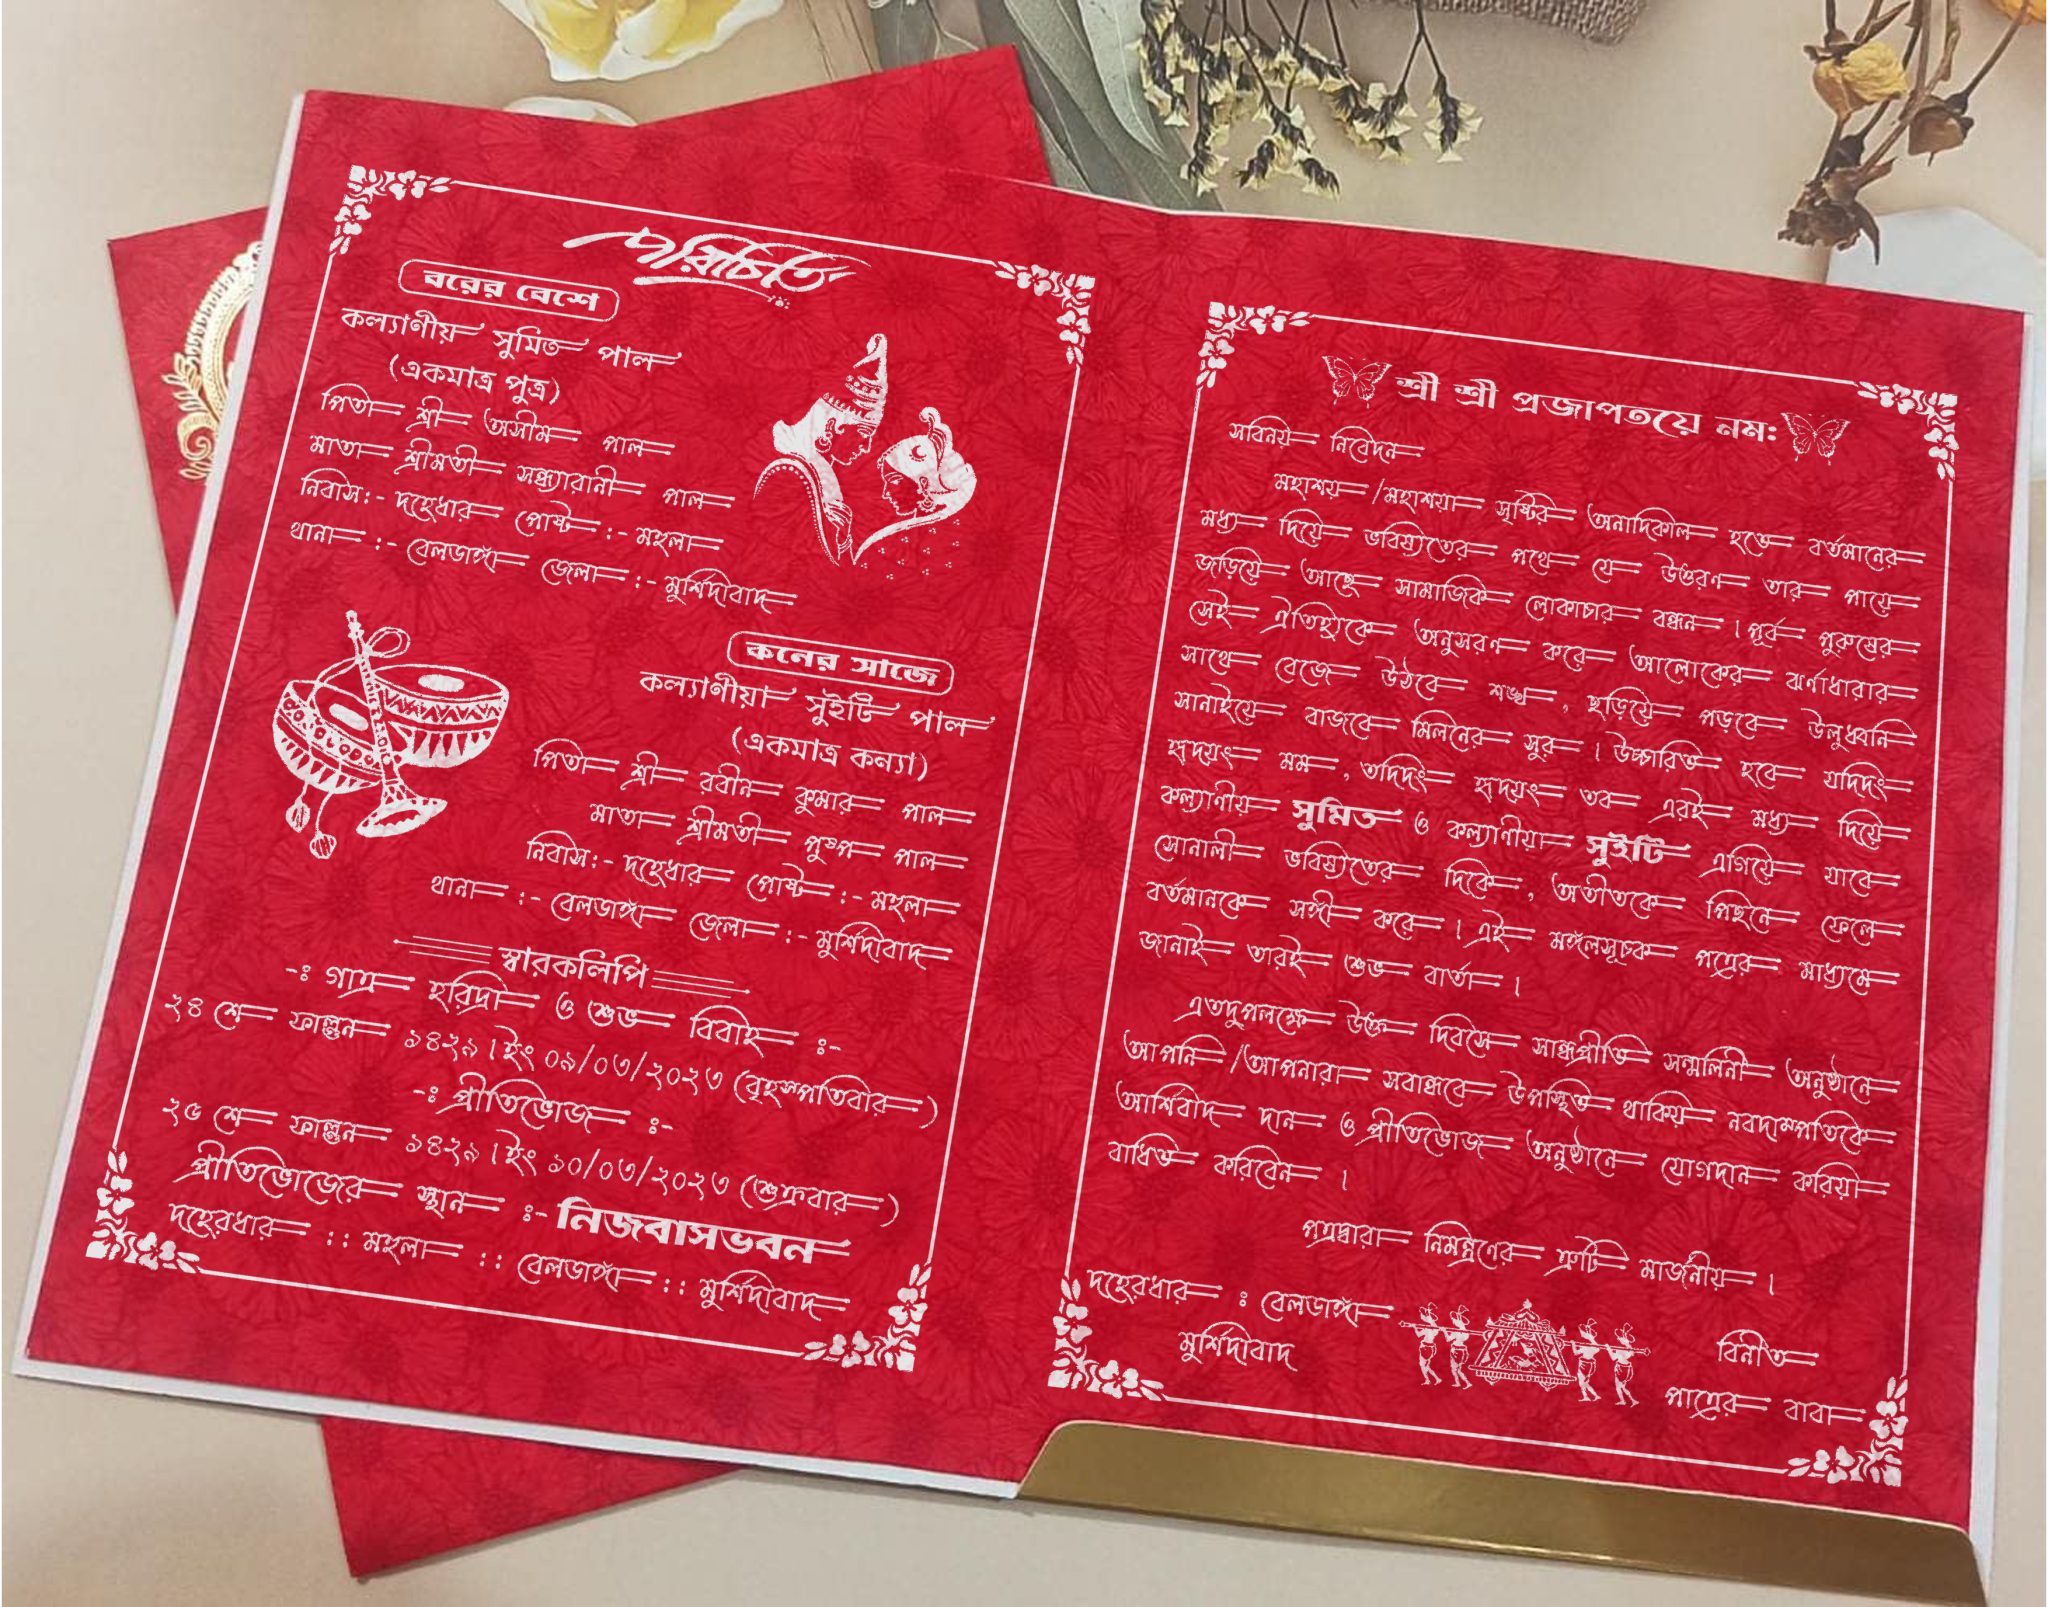 পরিচিতি
বরের বেশে
কল্যাণীয় সুমিত পাল
(একমাত্র পুত্র)
পিতা শ্রী অসীম পাল
মাতা শ্রীমতী সন্ধ্যারানী পাল
নিবাস:- দহেধার পোষ্ট :- মহুলা
থানা :- বেলডাঙ্গা জেলা :- মুর্শিদাবাদ
কনের সাজে
কল্যাণীয়া সুইটি পাল
(একমাত্র কন্যা)
পিতা শ্রী রবীন কুমার পাল
মাতা শ্রীমতী পুষ্প পাল
নিবাস:- দহেধার পোষ্ট :- মহুলা
থানা :- বেলডাঙ্গা জেলা :- মুর্শিদাবাদ
স্বারকলিপি
-ঃ গাত্র হরিদ্রা ও শুভ বিবাহ ঃ-
২৪ শে ফাল্গুন ১৪২৯ । ইং ০৯/০৩/২০২৩ (বৃহস্পতিবার)
-ঃ প্রীতিভোজ ঃ-
২৫ শে ফাল্গুন ১৪২৯ । ইং ১০/০৩/২০২৩ (শুক্রবার)
প্রীতিভোজের স্থান ঃ- নিজবাসভবন
দহেরধার :: মহুলা :: বেলডাঙ্গা :: মুর্শিদাবাদ
শ্রী শ্রী প্রজাপতয়ে নমঃ
সবিনয় নিবেদন
মহাশয়/মহাশয়া সৃষ্টির অনাদিকাল হতে বর্তমানের
মধ্য দিয়ে ভবিষ্যতের পথে যে উত্তরণ তার পায়ে
জড়িয়ে আছে সামাজিক লোকাচার বন্ধন । পূর্ব পুরুষের
সেই ঐতিহ্যকে অনুসরণ করে আলোকের ঝর্ণাধারার
সাথে বেজে উঠবে শঙ্খ, ছড়িয়ে পড়বে উলুধ্বনি
সানাইয়ে বাজবে মিলনের সুর । উচ্চারিত হবে যদিদং
হৃদয়ং মম, তদিদং হৃদয়ং তব এরই মধ্য দিয়ে
কল্যাণীয় সুমিত ও কল্যাণীয়া সুইটি এগিয়ে যাবে
সোনালী ভবিষ্যতের দিকে, অতীতকে পিছনে ফেলে
বর্তমানকে সঙ্গী করে । এই মঙ্গলসূচক পত্রের মাধ্যমে
জানাই তারই শুভ বার্তা ।
এতদুপলক্ষে উক্ত দিবসে সান্ধ্যপ্রীতি সন্মলিনী অনুষ্ঠানে
আপনি/আপনারা সবান্ধবে উপস্থিত থাকিয় নবদাম্পতিকে
আর্শিবাদ দান ও প্রীতিভোজ অনুষ্ঠানে যোগদান করিয়া
বাধিত করিবেন ।
পত্রদ্বারা নিমন্ত্রণের ত্রুটি মার্জনীয় ।
দহেরধার ঃ বেলডাঙ্গা
মুর্শিদাবাদ
বিনীত
পাত্রের বাবা